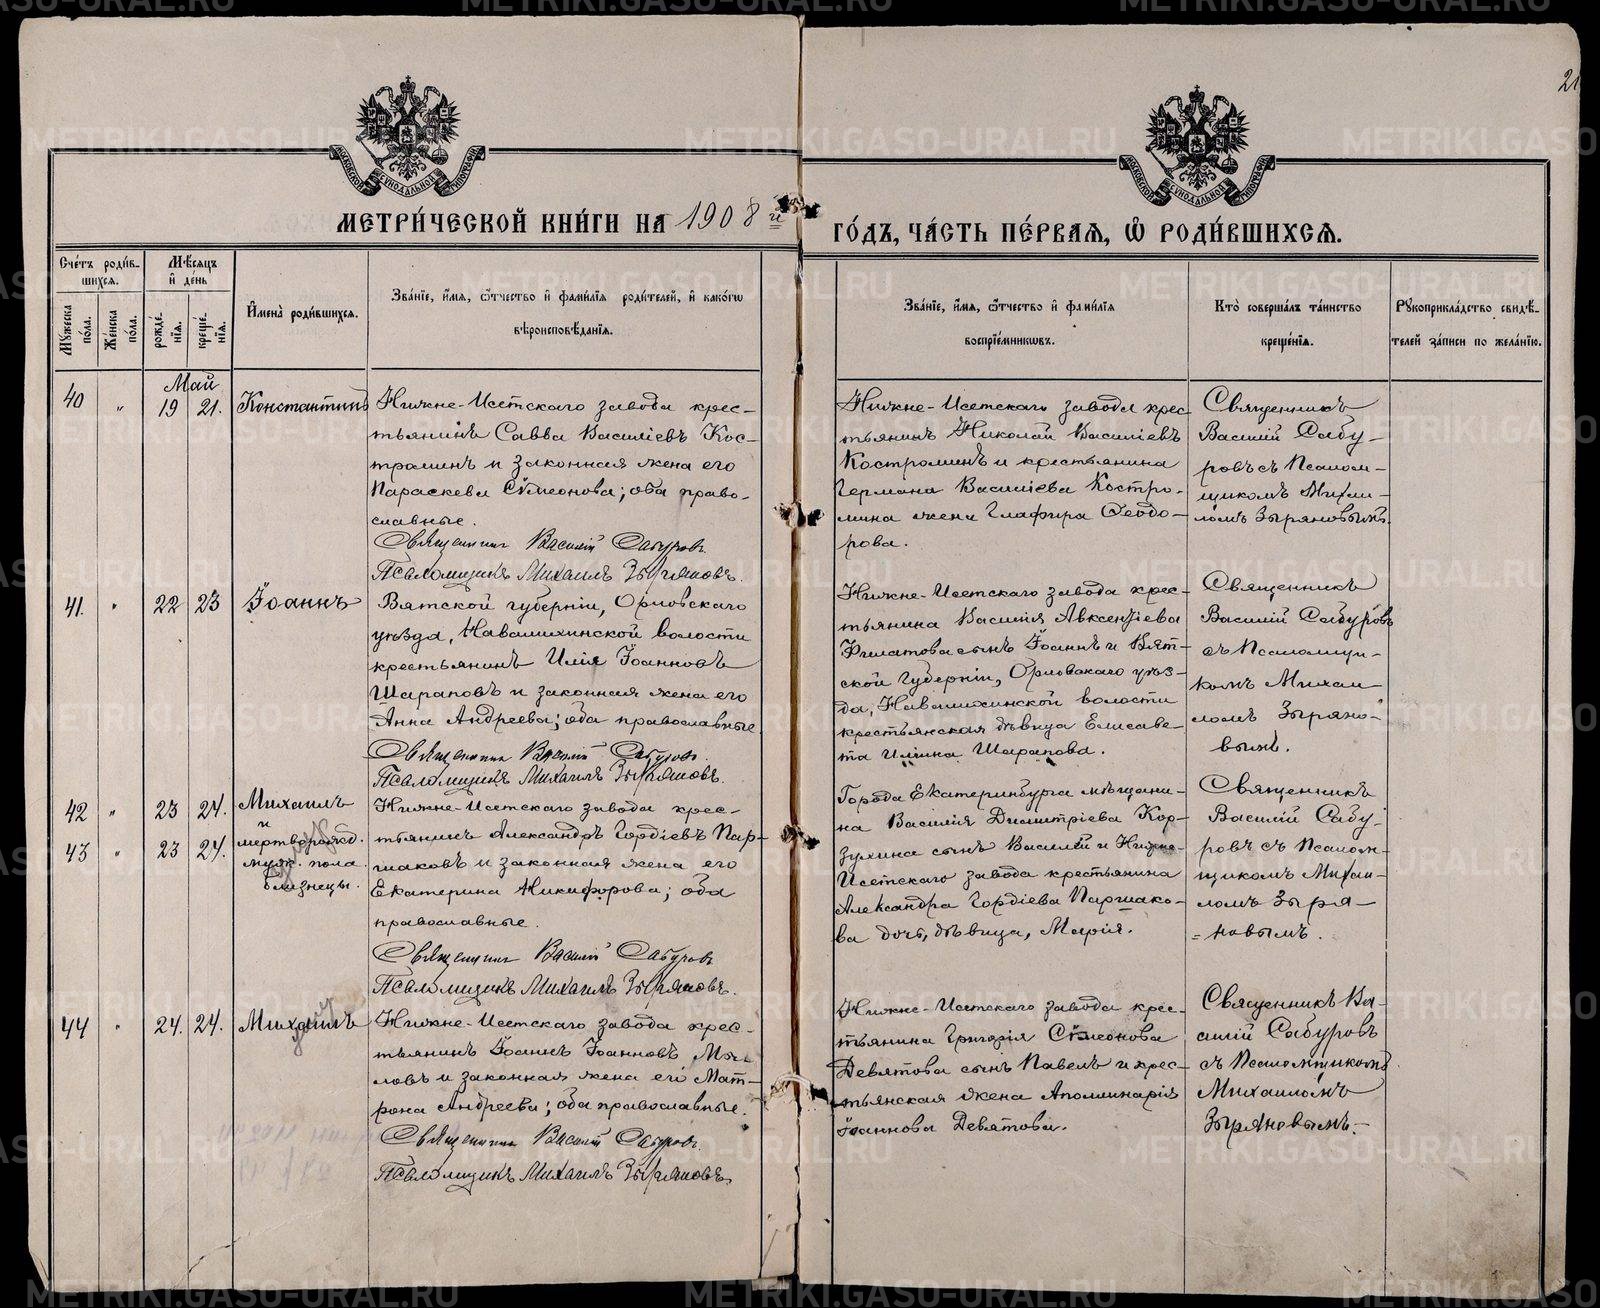 21
МЕТРИ́ЧЕСКОЙ КНИ́ГИ НА 1908 й
ГО́ДЪ, ЧА́СТЬ ПЕ́РВАЯ, Ѡ҆ РОДИ́ВШИХСЯ.
Сче́тъ роди́в-
шихся.
Мꙋжеска по́ла.
Же́нска по́ла.
Мѣ́сяцъ
и҆ де́нь
рожде́-
нїя.
креще́-
нїя.
И҆мена̀ роди́вшихся.
Зва́нїе, и҆́мя, ѻ҆́тчество и҆ фами́лїя роди́телей, и҆ како́гѡ
вѣроисповѣ́данїя.
Зва́нїе, и҆́мя, ѻ҆́тчество и҆ фами́лїя
воспрїе́мникѡвъ.
Кто̀ соверша́лъ та́инство
креще́нїя.
Рꙋкоприкла́дство свидѣ́-
телей за́писи по жела́нїю.
Май
40 „ 19 21. Константинъ
Нижне-Исетскаго завода крес-
тьянинъ Савва Василіевъ Кос-
троминъ и законная жена его
Параскева Сѵмеонова; оба право-
славные.
Священникъ Василій Сабуровъ.
Псаломщикъ Михаилъ Зыряновъ.
Нижне-Исетскаго завода крес-
тьянинъ Николай Василіевъ
Костроминъ и крестьянина
Германа Василіева Костро-
мина жена Глафира Ѳеодо-
рова.
Священникъ
Василій Сабу-
ровъ съ Псалом-
щикомъ Михаи-
ломъ Зыряновымъ.
41. „ 22 23 Іоаннъ
Вятской губерніи, Орловскаго
уѣзда, Навалихинской волости
крестьянинъ Илія Іоанновъ
Шараповъ и законная жена его
Анна Андреева; оба православные.
Священникъ Василій Сабуровъ.
Псаломщикъ Михаилъ Зыряновъ.
Нижне-Исетскаго завода крес-
тьянина Василія Авксентіева
Филатова сынъ Іоаннъ и Вят-
ской губерніи, Орловскаго уѣз-
да, Навалихинской волости
крестьянская дѣвица Елисаве-
та Иліина Шарапова.
Священникъ
Василій Сабуровъ
съ Псаломщи-
комъ Михаи-
ломъ Зыряно-
вымъ.
42 „ 23 24. Михаилъ
и
43 „ 23 24. мертворожд.
муж. пола.
близнецы.
Нижне-Исетскаго завода крес-
тьянинъ Александръ Гордіевъ Пар-
шаковъ и законная жена его
Екатерина Никифорова; оба
православные.
Священникъ Василій Сабуровъ
Псаломщикъ Михаилъ Зыряновъ.
Города Екатеринбурга мѣщани-
на Василія Димитріева Кор-
зухина сынъ Василій и Нижне-
Исетскаго завода крестьянина
Александра Гордіева Паршако-
ва дочь, дѣвица, Марія.
Священникъ
Василій Сабу-
ровъ съ Псалом-
щикомъ Михаи-
ломъ Зыря-
новымъ.
44 „ 24. 24. Михаилъ
Нижне-Исетскаго завода крес-
тьянинъ Іоаннъ Іоанновъ
ловъ и законная жена его Мат-
рона Андреева; оба православные.
Священникъ Василій Сабуровъ.
Псаломщикъ Михаилъ Зыряновъ.
Нижне-Исетскаго завода крес-
тьянина Григорія Сѵмеонова
Девятова сынъ Павелъ и крес-
тьянская жена Аполлинарія
Іоаннова Девятова.
Священникъ Ва-
силій Сабуровъ
съ Псаломщикомъ
Михаиломъ
Зыряновымъ.